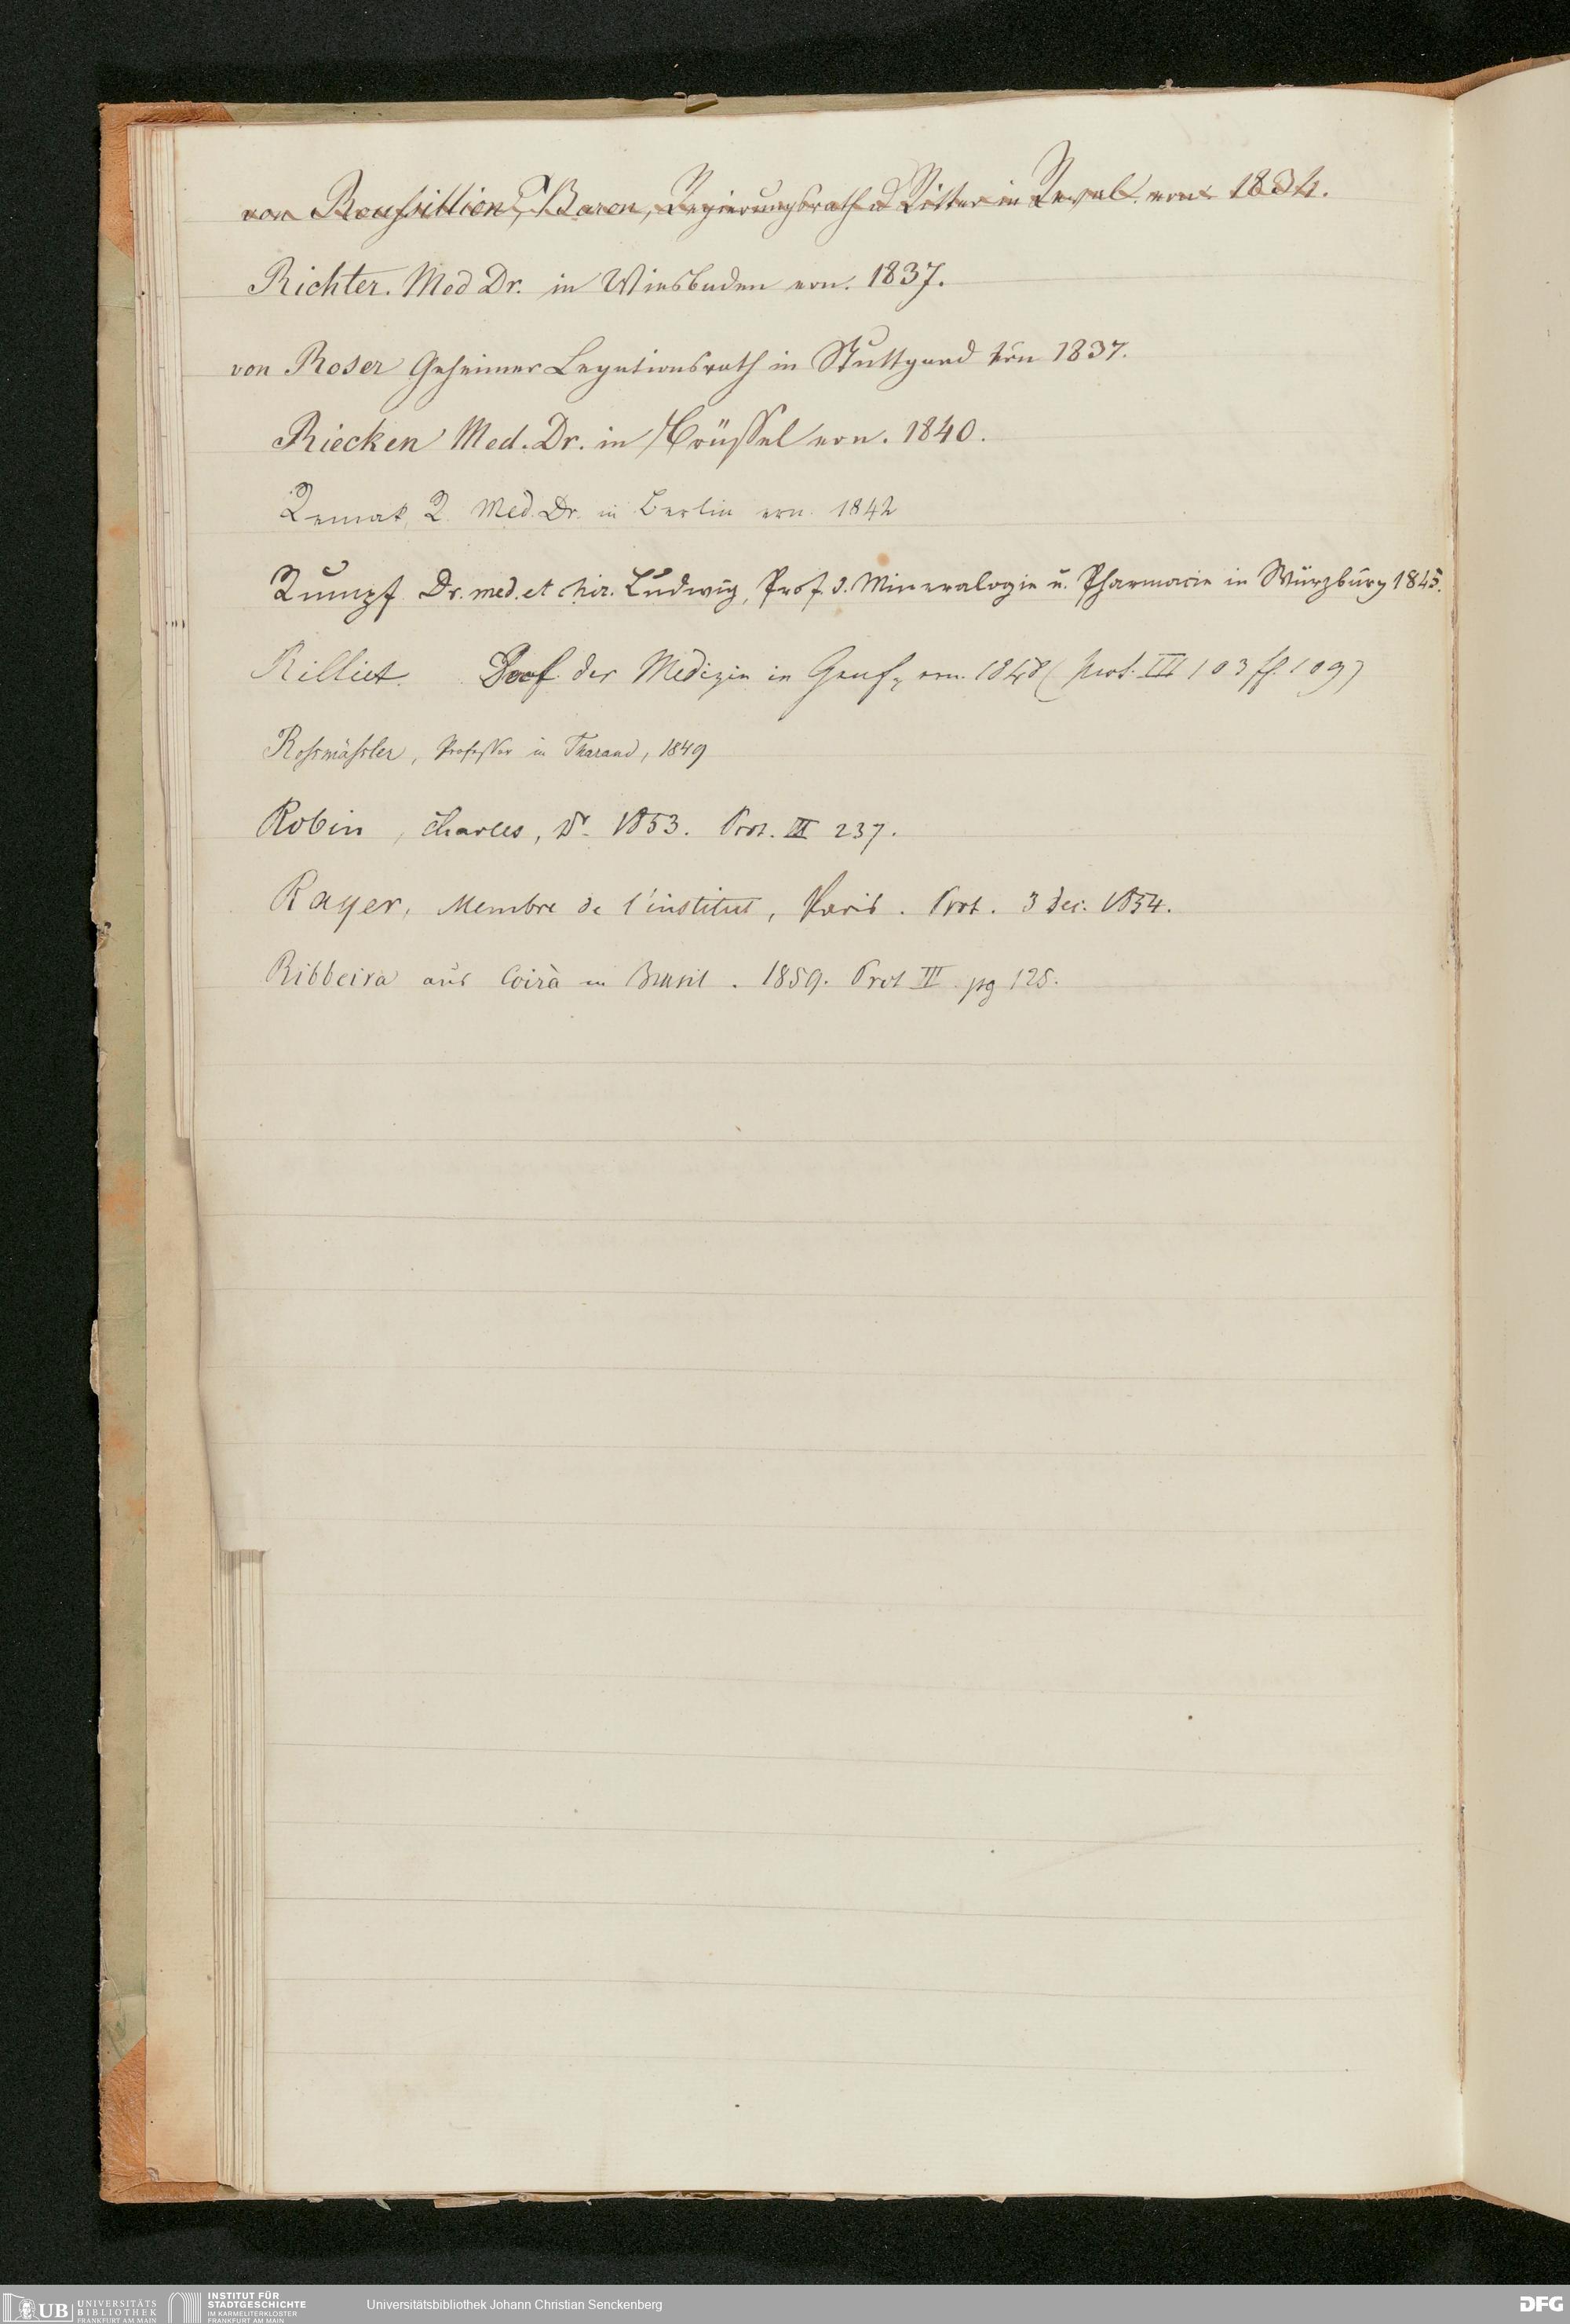 von Roussillion, Baron, Regierungsrath u Ritter in Reval ern 1834.
Richter. Med Dr. in Wiesbaden ern. 1837.
von Roser Geheimer Legationsrath in Stuttgard ern 1837.
Riecken Med. Dr. in Brüssel ern. 1840.
Remak, R. Med. Dr. in Berlin ern. 1842
Rumpf Dr. med. et chir. Ludwig, Prof. d. Mineralogie u. Pharmacie in Würzburg 1845.
Rilliet. Prof. der Medizin in Genf, ern. 1848 (Prot. III 103 ff. 109)
Rossmässler, Professor in Tharand, 1849
Robin, Charles, Dr. 1853. Prot. III 237.
Rayer, Membre de l'institut, Paris. Prot. 3 Dec. 1854.
Ribbeira aus in Brasil. 1859. Prot III pg 125.
UB UNIVERSITÄTS BIBLIOTHEK FRANKFURT AM MAIN
INSTITUT FÜR STADTGESCHICHTE IM KARMELITERKLOSTER FRANKFURT AM MAIN
Universitätsbibliothek Johann Christian Senckenberg
DFG